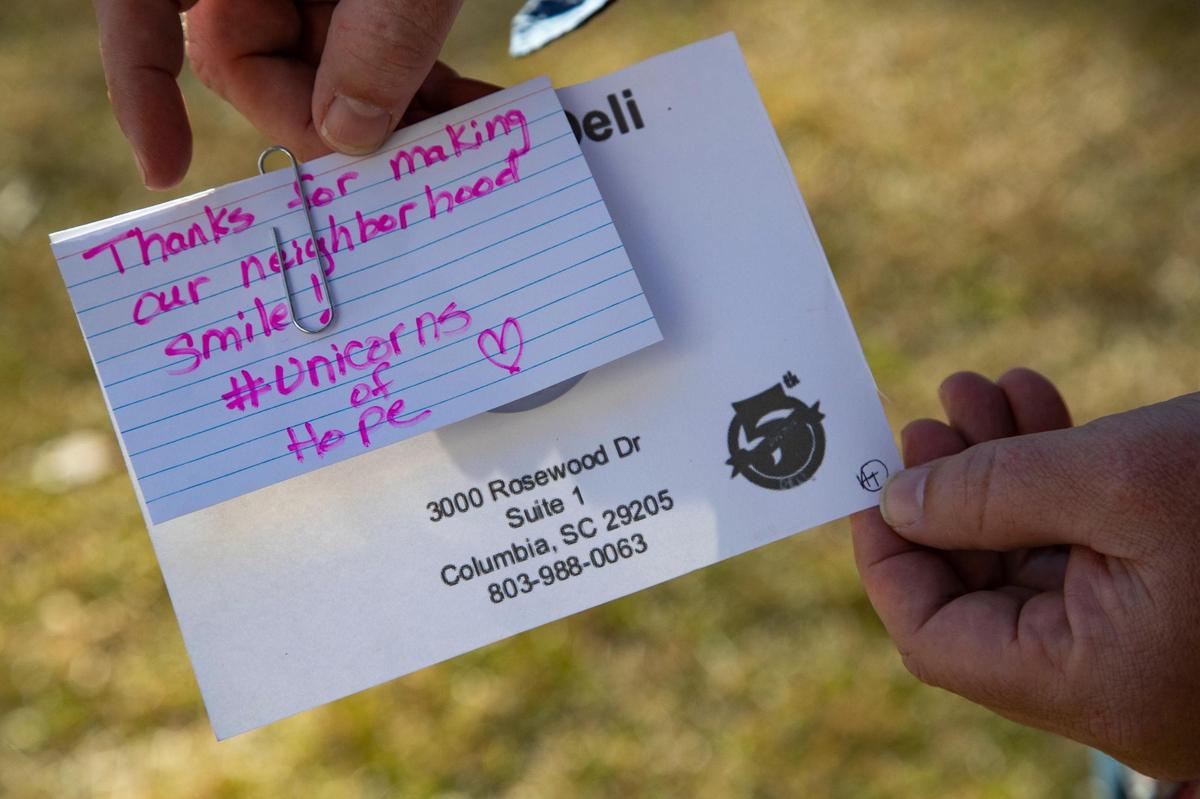 Thanks for making
our neighborhood
smile!
#Unicorns
of
Hope
eli
3000 Rosewood Dr
Suite 1
Columbia, SC 29205
803-988-0063
5th